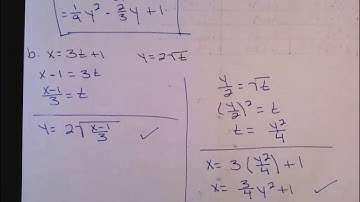 = 1/9 y² - 2/3 y + 1
b. x = 3t + 1    y = 2√t
x - 1 = 3t
(x-1)/3 = t
y = 2√((x-1)/3) ✓
y/2 = √t
(y/2)² = t
t = y²/4
x = 3(y²/4) + 1
x = 3/4 y² + 1 ✓